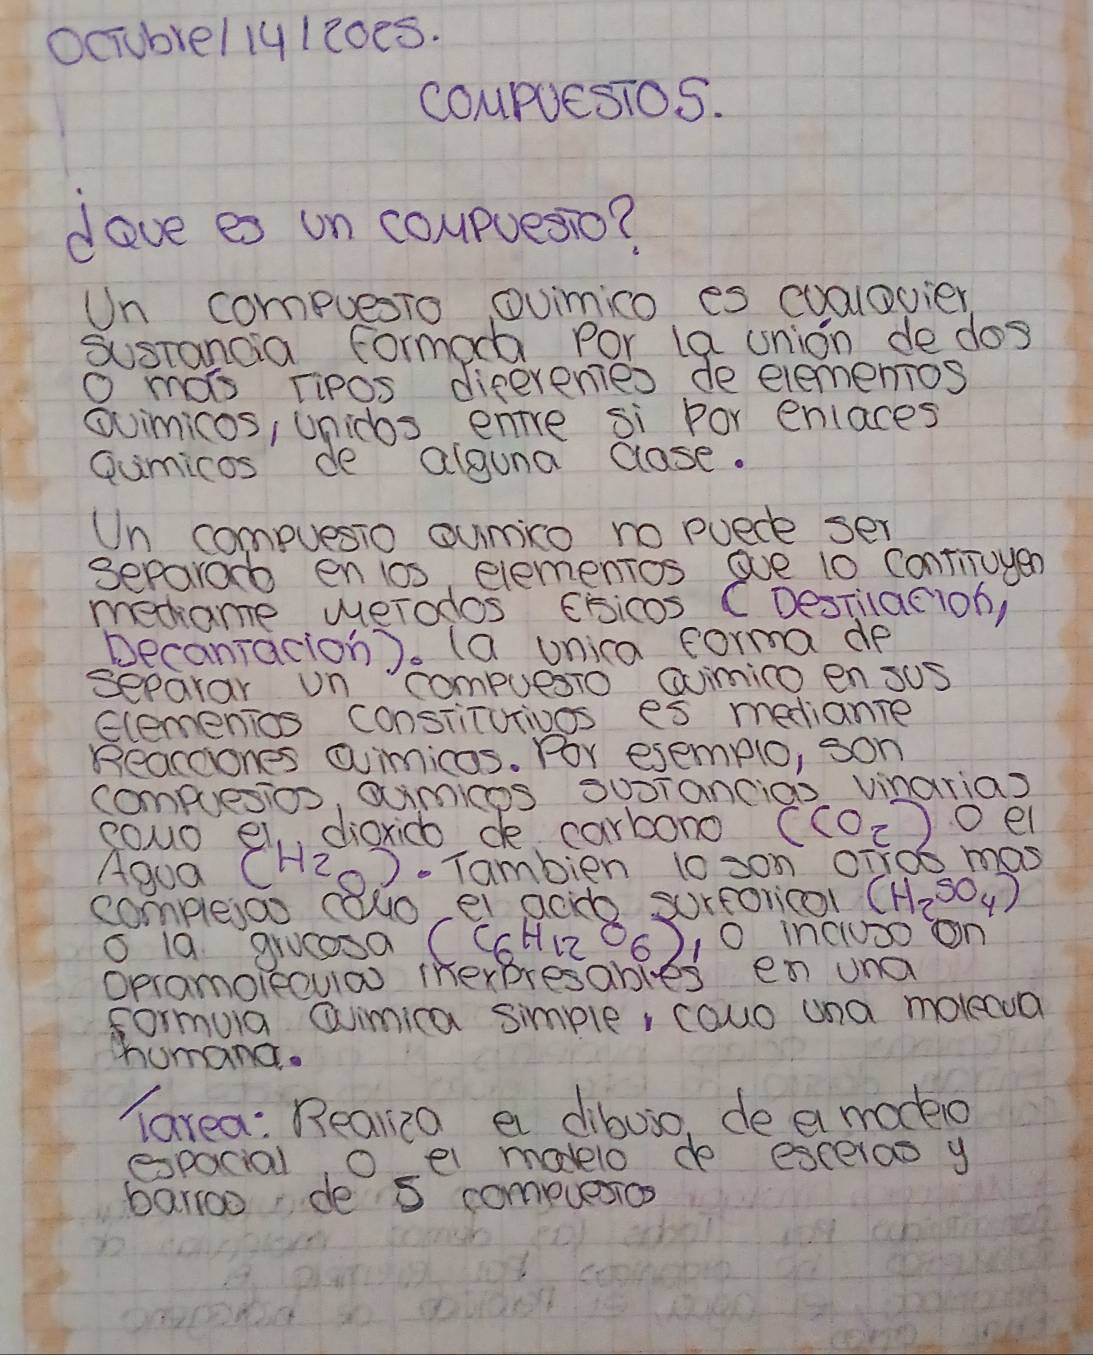 Octubre/14/2025.
COMPUESTOS.
¿Que es un compuesto?
Un compuesto quimico es cualquier
sustancia formada por la unión de dos
o más tipos diferentes de elementos
quimicos, unidos entre si por enlaces
quimicos de alguna clase.
Un compuesto quimico no puede ser
separado en los elementos que lo contituyen
mediante metodos fisicos (Destilación,
Decantación). la unica forma de
separar un compuesto quimico en sus
elementos constitutivos es mediante
Reacciones quimicas. Por ejemplo, son
compuestos quimicos sustancias vinarias
como el dioxido de carbono (CO2) o el
Agua (H2O). Tambien lo son otros mas
complejos como el acido surforicol (H2SO4)
o la grucosa (C6H12O6), o incluso on
opramoleculas inexpresables en una
formula quimica simple, como una molecua
humana.
Tarea: Realiza el dibujo de el modelo
espacial o el modelo de esceras y
barras de 5 compuestos